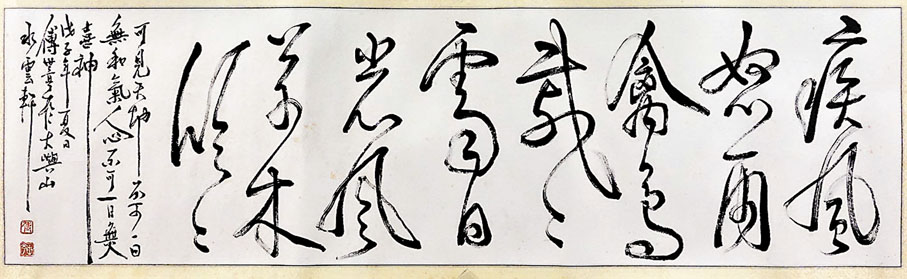 疾風
怒雨
禽鳥
戚〻
霽日
光風
草木
欣〻
可見天地不可一日
無和氣人心不可一日無
喜神
戊子年夏日
傅世 大 山
雲軒